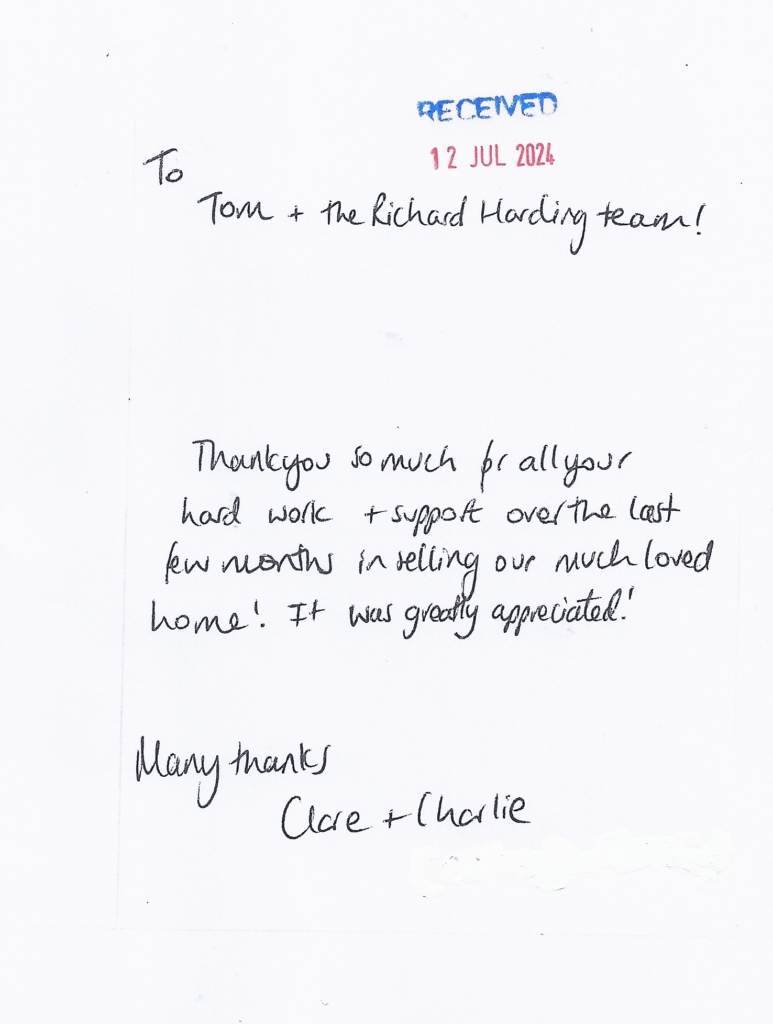 RECEIVED
12 JUL 2024
To
Tom + the Richard Harding team!
Thankyou so much for all your
hard work + support over the last
few months in selling our much loved
home! It was greatly appreciated!
Many thanks
Clare + Charlie